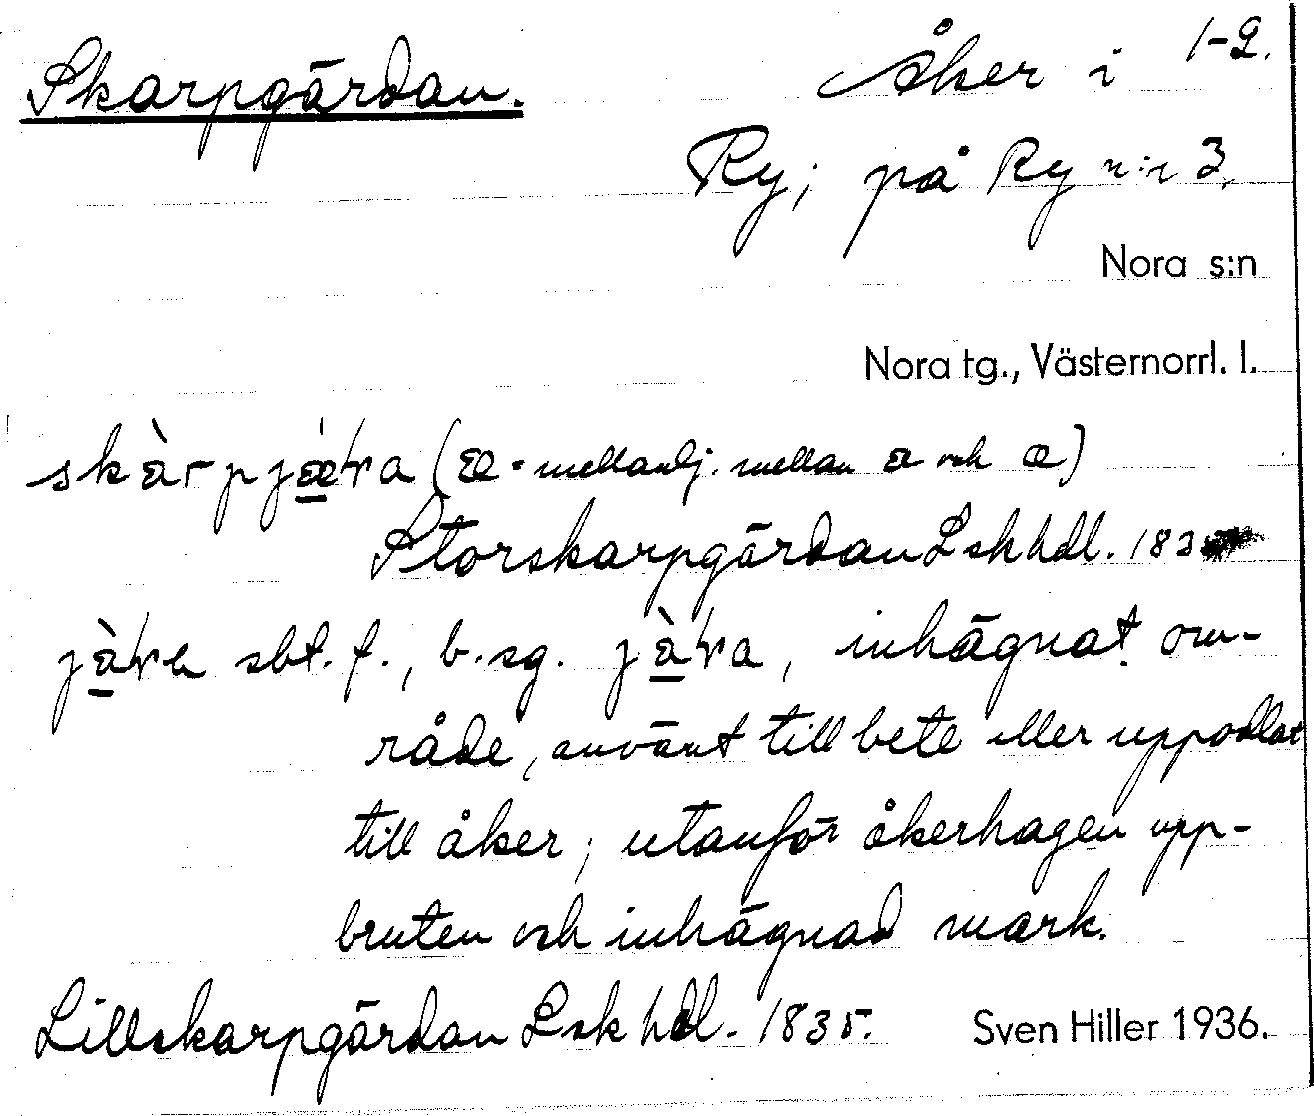 Skarpgärdan. Åker i 1-2.
Ry; på Ry n:r 3.
Nora s:n
Nora tg., Västernorrl. l.
(æ = mellanlj. mellan a och æ)
Storskarpgärdan Lsk hdl. 1835
sbt. f., b. sg. inhägnat om-
råde, använt till bete eller uppodlat
till åker; utanför åkerhagen upp-
bruten och inhägnad mark.
Lillskarpgärdan Lsk hdl. 1835. Sven Hiller 1936.